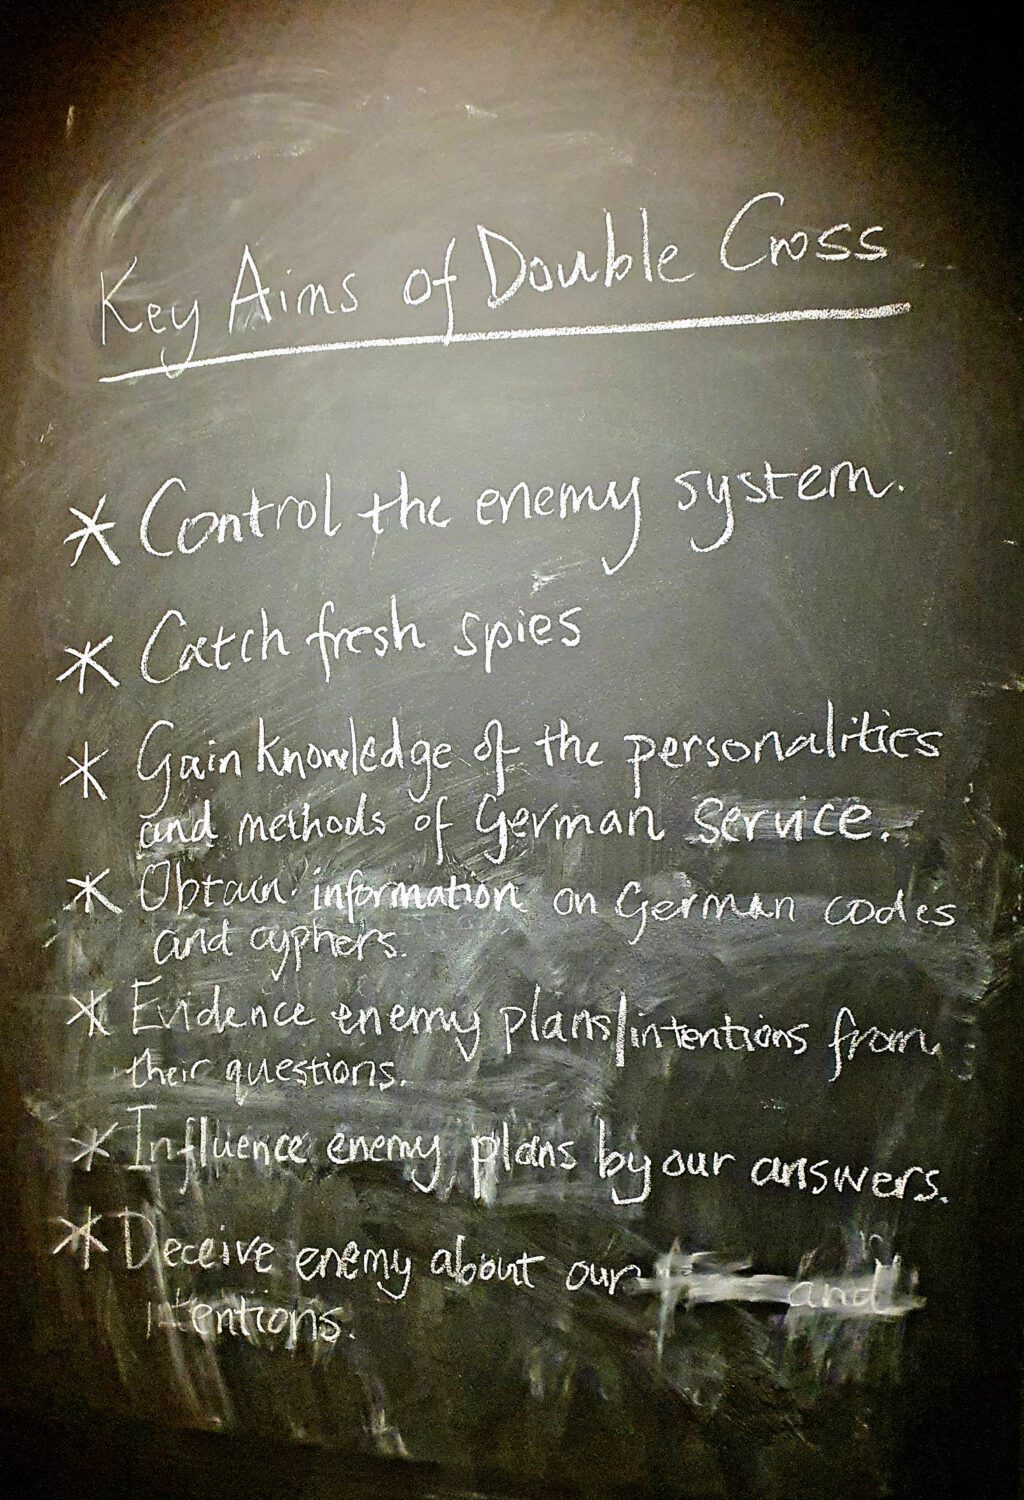 Key Aims of Double Cross
* Control the enemy system.
* Catch fresh spies
* Gain knowledge of the personalities
and methods of German Service.
* Obtain information on German codes
and cyphers.
* Evidence enemy plans/intentions from
their questions.
* Influence enemy plans by our answers.
* Deceive enemy about our and
intentions.